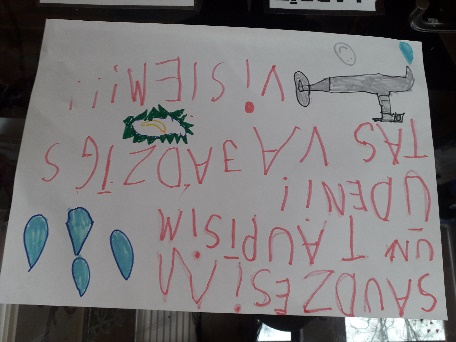 SAUDZESiM
UN TAUPĪSiM
ŪDENI!
TAS VAJADZĪGS
ViSIEM!!!